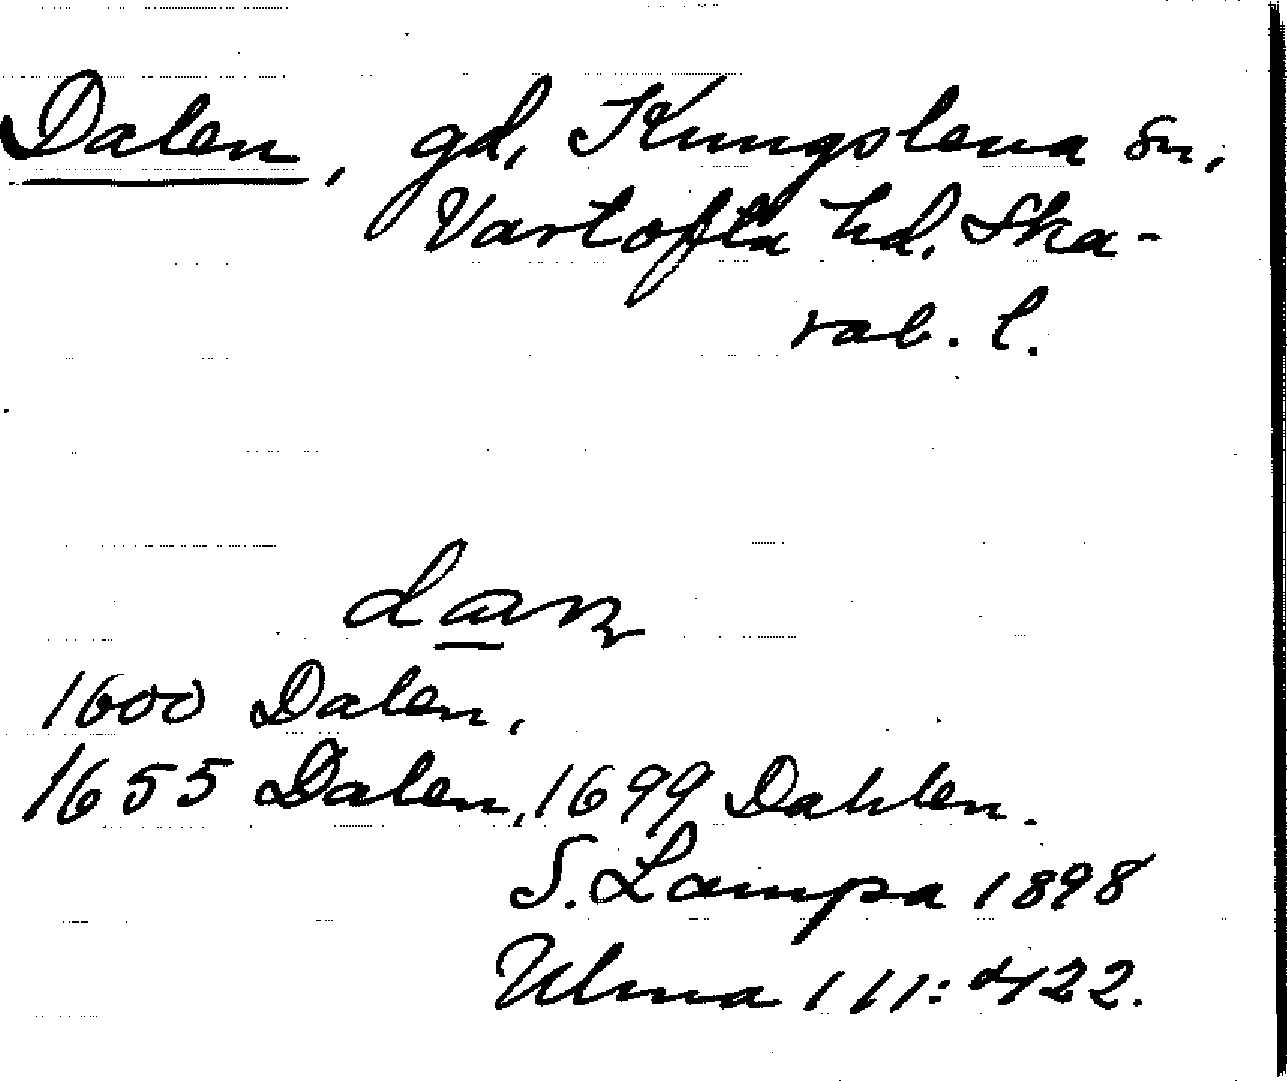 Dalen, gd, Kungslena sn,
Vartofta hd. Ska-
rab. l.
1600 Dalen,
1655 Dalen, 1699 Dahlen.
S. Lampa 1898
Ulma 111:422.